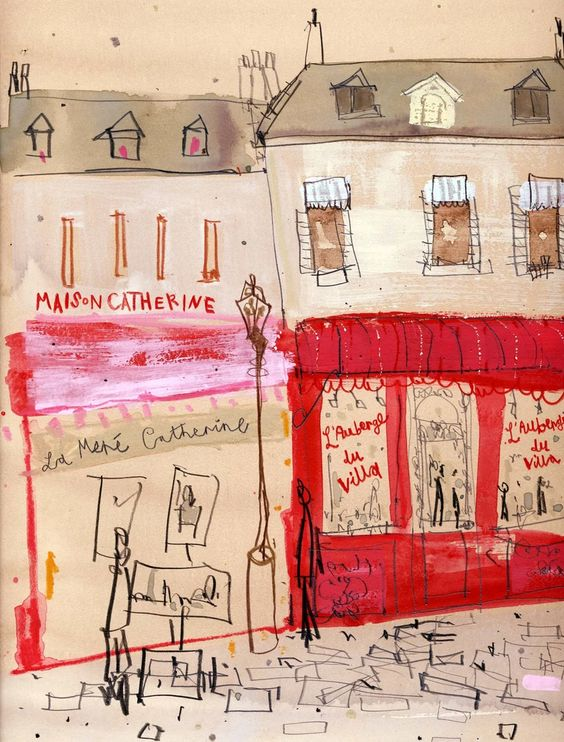 MAISON CATHERINE
La Meré Catherine
L'Auberge
du
Villa
L'Auberge
du
Villa